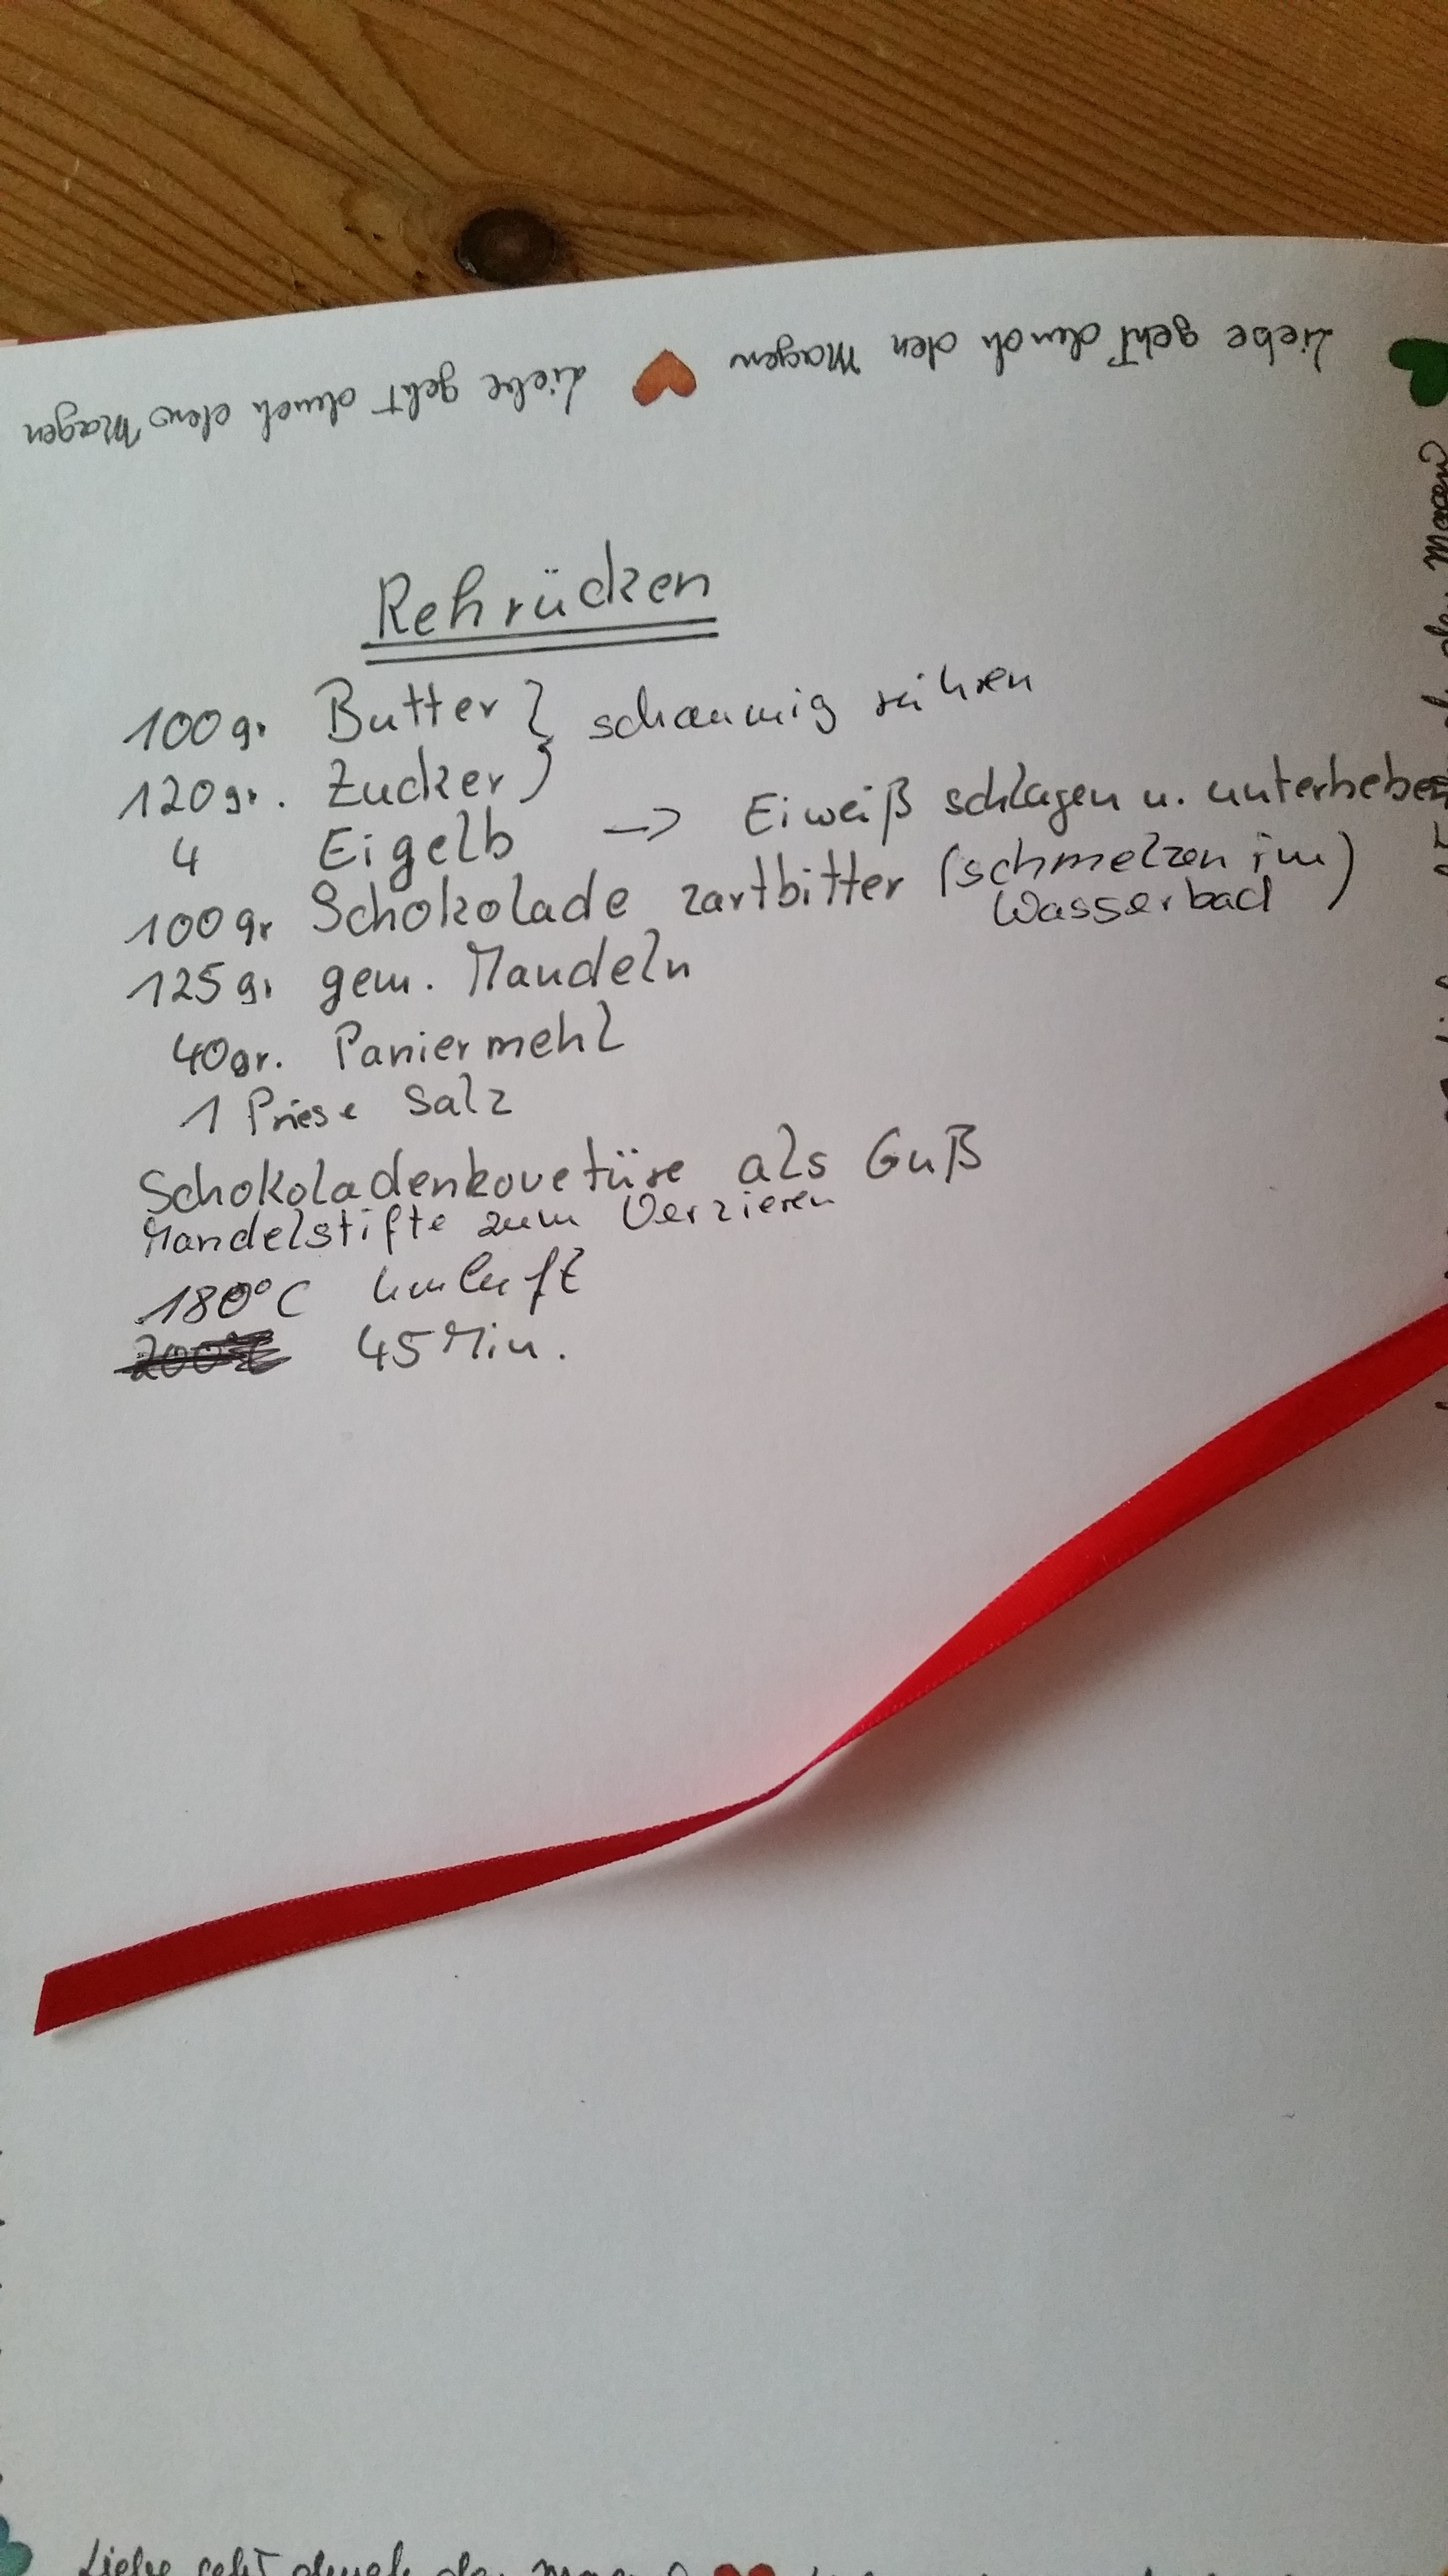 Liebe geht durch den Magen Liebe geht durch den Magen
Rehrücken
100gr. Butter } schaumig rühren
120gr. Zucker }
4 Eigelb -> Eiweiß schlagen u. unterheben
100gr Schokolade zartbitter (schmelzen im
Wasserbad)
125gr gem. Mandeln
40gr. Paniermehl
1 Priese Salz
Schokoladenkovetüre als Guß
Mandelstifte zum Verzieren
180°C Umluft
45 Min.
Liebe geht durch den